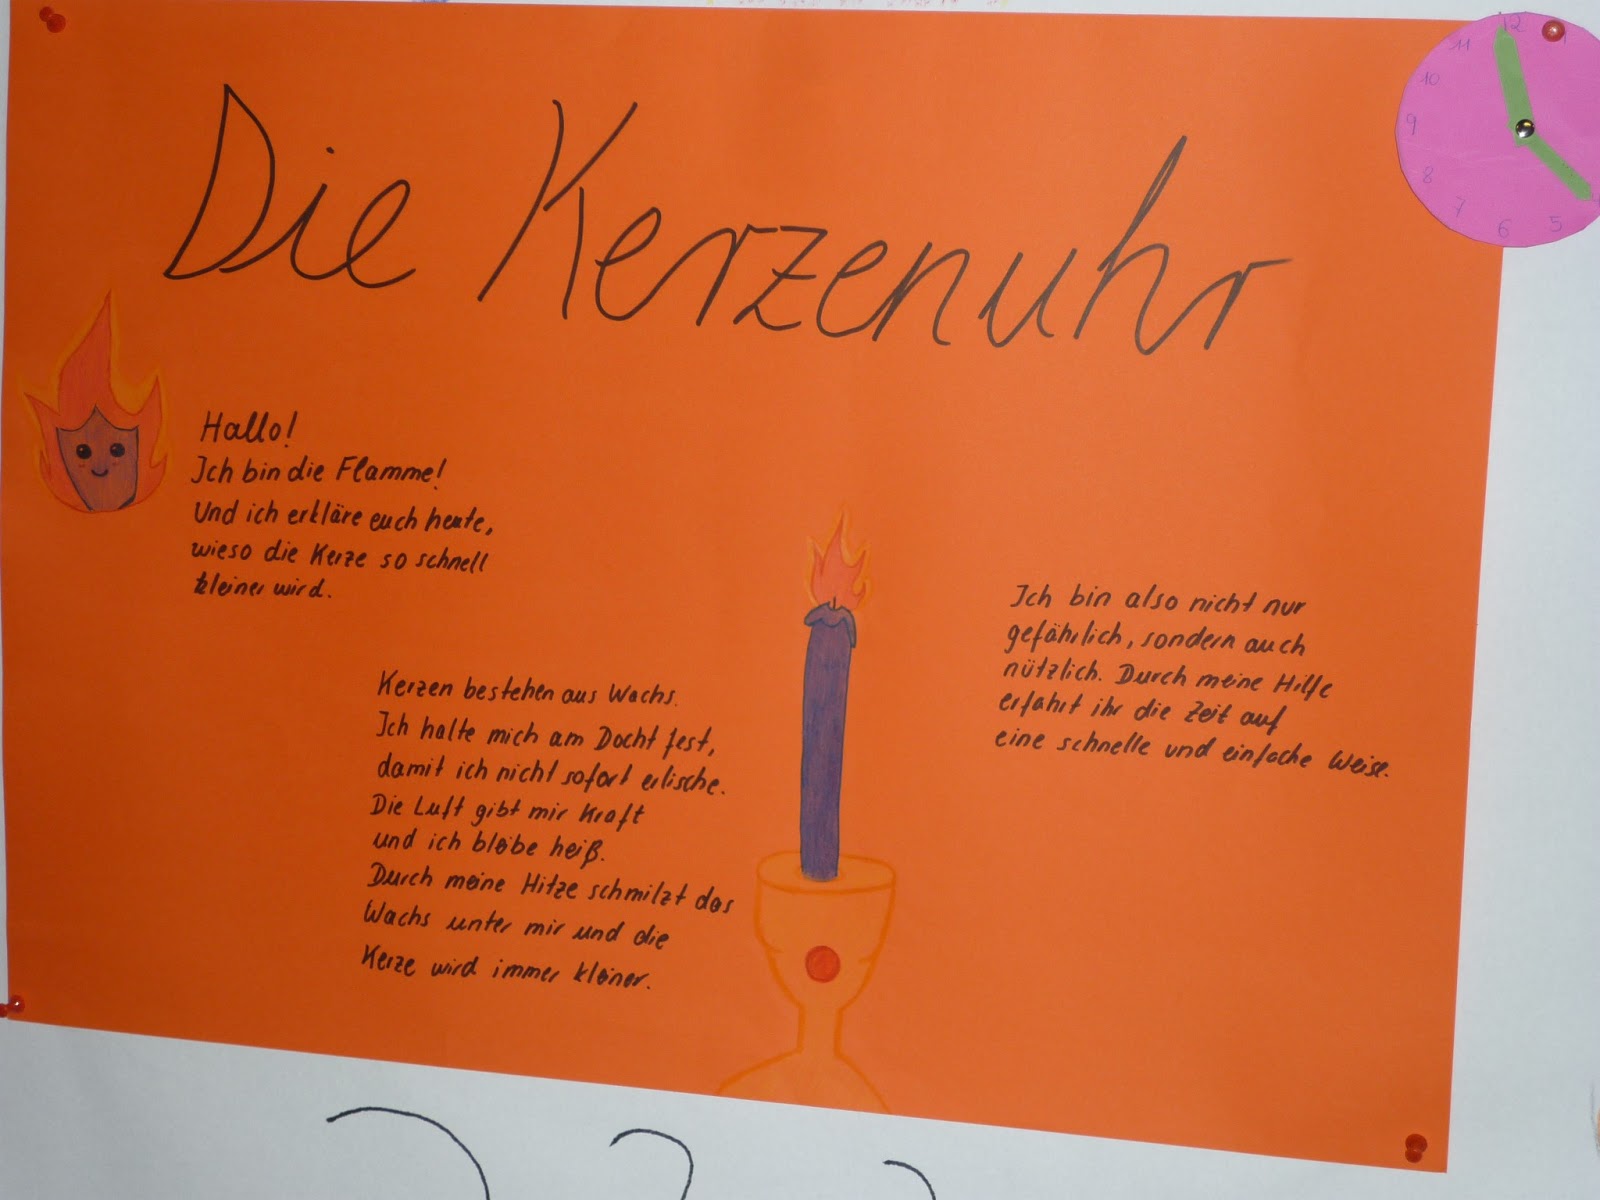 Die Kerzenuhr
Hallo!
Ich bin die Flamme!
Und ich erkläre euch heute,
wieso die Kerze so schnell
kleiner wird.
Kerzen bestehen aus Wachs.
Ich halte mich am Docht fest,
damit ich nicht sofort erlische.
Die Luft gibt mir Kraft
und ich bleibe heiß.
Durch meine Hitze schmilzt das
Wachs unter mir und die
Kerze wird immer kleiner.
Ich bin also nicht nur
gefährlich, sondern auch
nützlich. Durch meine Hilfe
erfahrt ihr die Zeit auf
eine schnelle und einfache Weise.
12
1
11
10
9
8
7
6
5